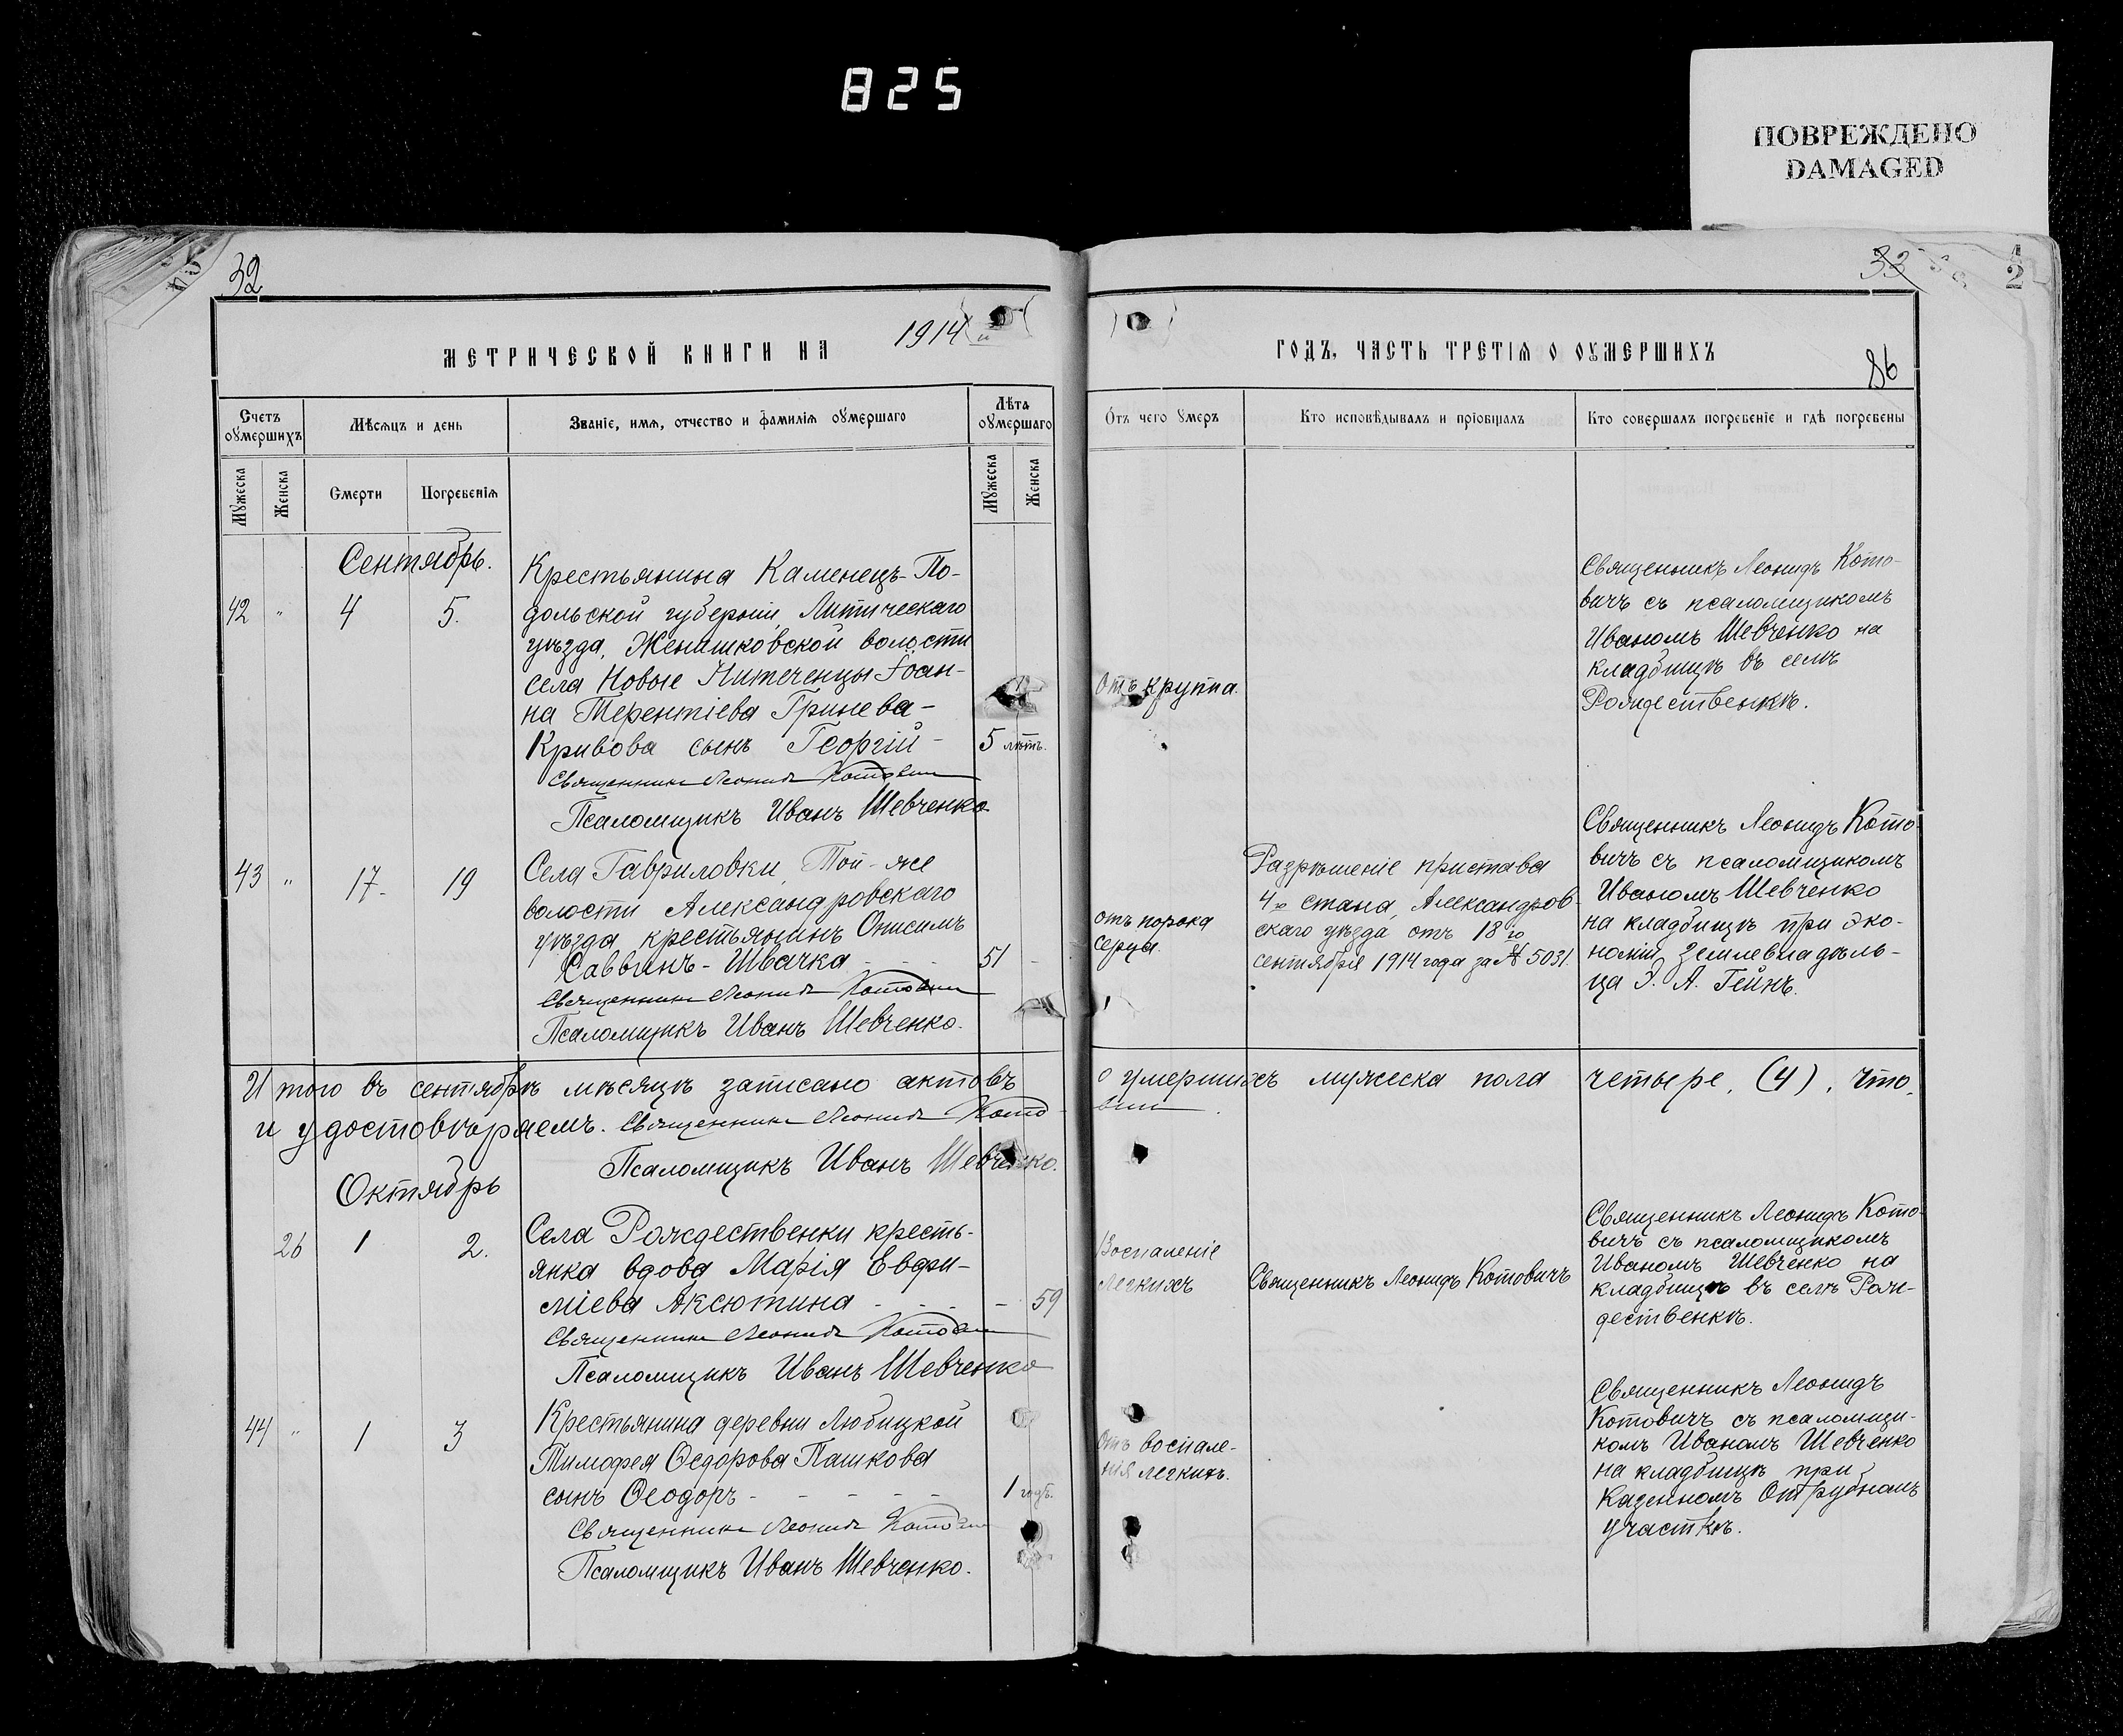 825
ПОВРЕЖДЕНО
DAMAGED
32
33
МЕТРИЧЕСКОЙ КНИГИ НА 1914 й
ГОДЪ, ЧАСТЬ ТРЕТІѦ О ОУМЕРШИХЪ
86
Счетъ оумершихъ
Мѣсѧцъ и день
Званіе, имѧ, отчество и фамиліѧ оумершаго
Лѣта оумершаго
Отъ чего умеръ
Кто исповѣдывалъ и пріобщалъ
Кто совершалъ погребеніе и гдѣ погребены
Мужеска
Женска
Смерти
Погребеніѧ
Мужеска
Женска
Сентябрь.
42 " 4 5.
Крестьянина Каменецъ-По-
дольской губерніи, Литическаго
уѣзда, Женишковской волости
села Новые Нитеченцы Іоан-
на Терентіева Гринева-
Кривова сынъ Георгій - 5 лѣтъ.
Священникъ Леонидъ Котович
Псаломщикъ Иванъ Шевченко
Отъ крупа.
Священникъ Леонидъ Кото-
вичъ съ псаломщикомъ
Иваномъ Шевченко на
кладбищѣ въ селѣ
Рождественкѣ.
43 " 17- 19
Села Гавриловки, Той-же
волости Александровскаго
уѣзда крестьянинъ Онисимъ
Саввинъ-Швачка - - - 51 -
Священникъ Леонидъ Котович
Псаломщикъ Иванъ Шевченко.
отъ порока
серца.
Разрѣшеніе пристава
4го стана, Александров-
скаго уѣзда отъ 18го
сентября 1914 года за № 5031.
Священникъ Леонидъ Кото-
вичъ съ псаломщикомъ
Иваномъ Шевченко
на кладбищѣ при эко-
номіи землевладѣль-
ца Э. А. Гейнъ.
Итого въ сентябрѣ мѣсяцѣ записано актовъ о умершихъ мужеска пола четыре, (4), что
и удостовѣряемъ. Священникъ Леонидъ Котович
Псаломщикъ Иванъ Шевченко.
Октябрь
26 1 2.
Села Рождественки кресть-
янка вдова Марія Евфи-
міева Аксютина - - - - 59
Священникъ Леонидъ Котович
Псаломщикъ Иванъ Шевченко
Воспаленіе
легкихъ
Священникъ Леонидъ Котовичъ
Священникъ Леонидъ Кото-
вичъ съ псаломщикомъ
Иваномъ Шевченко на
кладбищѣ въ селѣ Рож-
дественкѣ.
44 " 1 3
Крестьянина деревни Любицкой
Тимофея Ѳедорова Пашкова
сынъ Ѳеодоръ - - - - - 1 годъ.
Священникъ Леонидъ Котович
Псаломщикъ Иванъ Шевченко.
Отъ воспале-
нія легкихъ.
Священникъ Леонидъ
Котовичъ съ псаломщи-
комъ Иваномъ Шевченко
на кладбищѣ при
Казенномъ Отрубномъ
участкѣ.